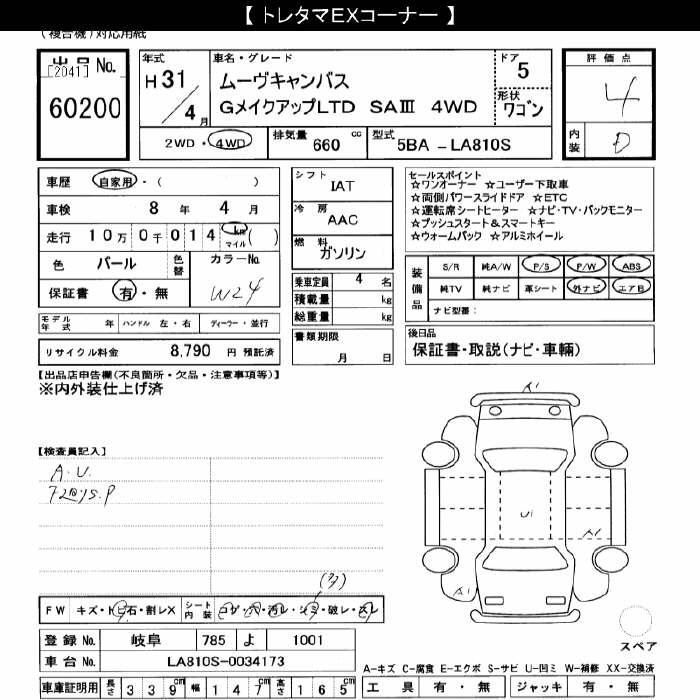 【 トレタマEXコーナー 】
(複合機)対応用紙
出品No.
[2041]
60200
年式
H31/4月
車名・グレード
ムーヴキャンバス
GメイクアップLTD SAⅢ 4WD
ドア
5
形状
ワゴン
評価点
4
内装
D
2WD・4WD
排気量 660 cc
型式 5BA -LA810S
車歴 自家用・( )
車検 8年 4月
走行 10万0千014 km マイル ( )
色 パール 色替 カラーNo.
W24
保証書 有・無
シフト
IAT
冷房
AAC
燃料
ガソリン
乗車定員 4 名
積載量 kg
総重量 kg
セールスポイント
☆ワンオーナー ☆ユーザー下取車
☆両側パワースライドドア ☆ETC
☆運転席シートヒーター ☆ナビ・TV・バックモニター
☆プッシュスタート&スマートキー
☆ウォームパック ☆アルミホイール
装備品
S/R 純A/W P/S P/W ABS
純TV 純ナビ 革シート 外ナビ エアB
ナビ型番:
モデル年式 年 ハンドル 左・右 ディーラー・並行
リサイクル料金 8,790 円 預託済
書類期限
月 日
後日品
保証書・取説(ナビ・車輛)
【出品店申告欄(不良箇所・欠品・注意事項等)】
※内外装仕上げ済
【検査員記入】
A.U.
A1
U1
A1
A1
(多)
FW キズ・トビ石・割レX シート内装 コゲ・穴・汚レ・シミ・破レ・スレ
登録No. 岐阜 785 よ 1001
車台No. LA810S-0034173
車庫証明用 長さ 339cm 幅 147cm 高さ 165cm
スペア
A-キズ C-腐食 E-エクボ S-サビ U-凹ミ W-補修 XX-交換済
工具 有・無 ジャッキ 有・無